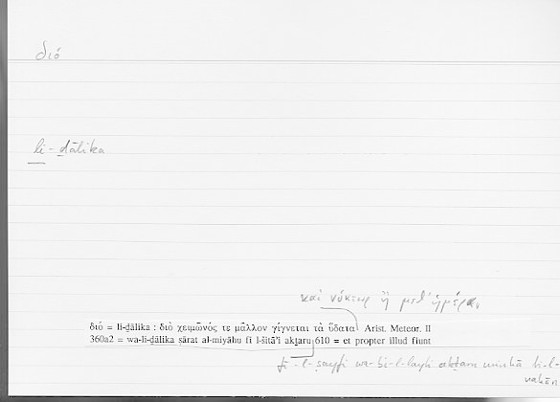 διό
li-ḏālika
καὶ νύκτωρ ἢ μεθ' ἡμέραν
διό = li-ḏālika : διὸ χειμῶνός τε μᾶλλον γίγνεται τὰ ὕδατα Arist. Meteor. II
360a2 = wa-li-ḏālika ṣārat al-miyāhu fī l-šitāʾi akṯaru 610 = et propter illud fiunt
-l-ṣayfi wa-bi-l-layli akṯaru minhā bi-l-